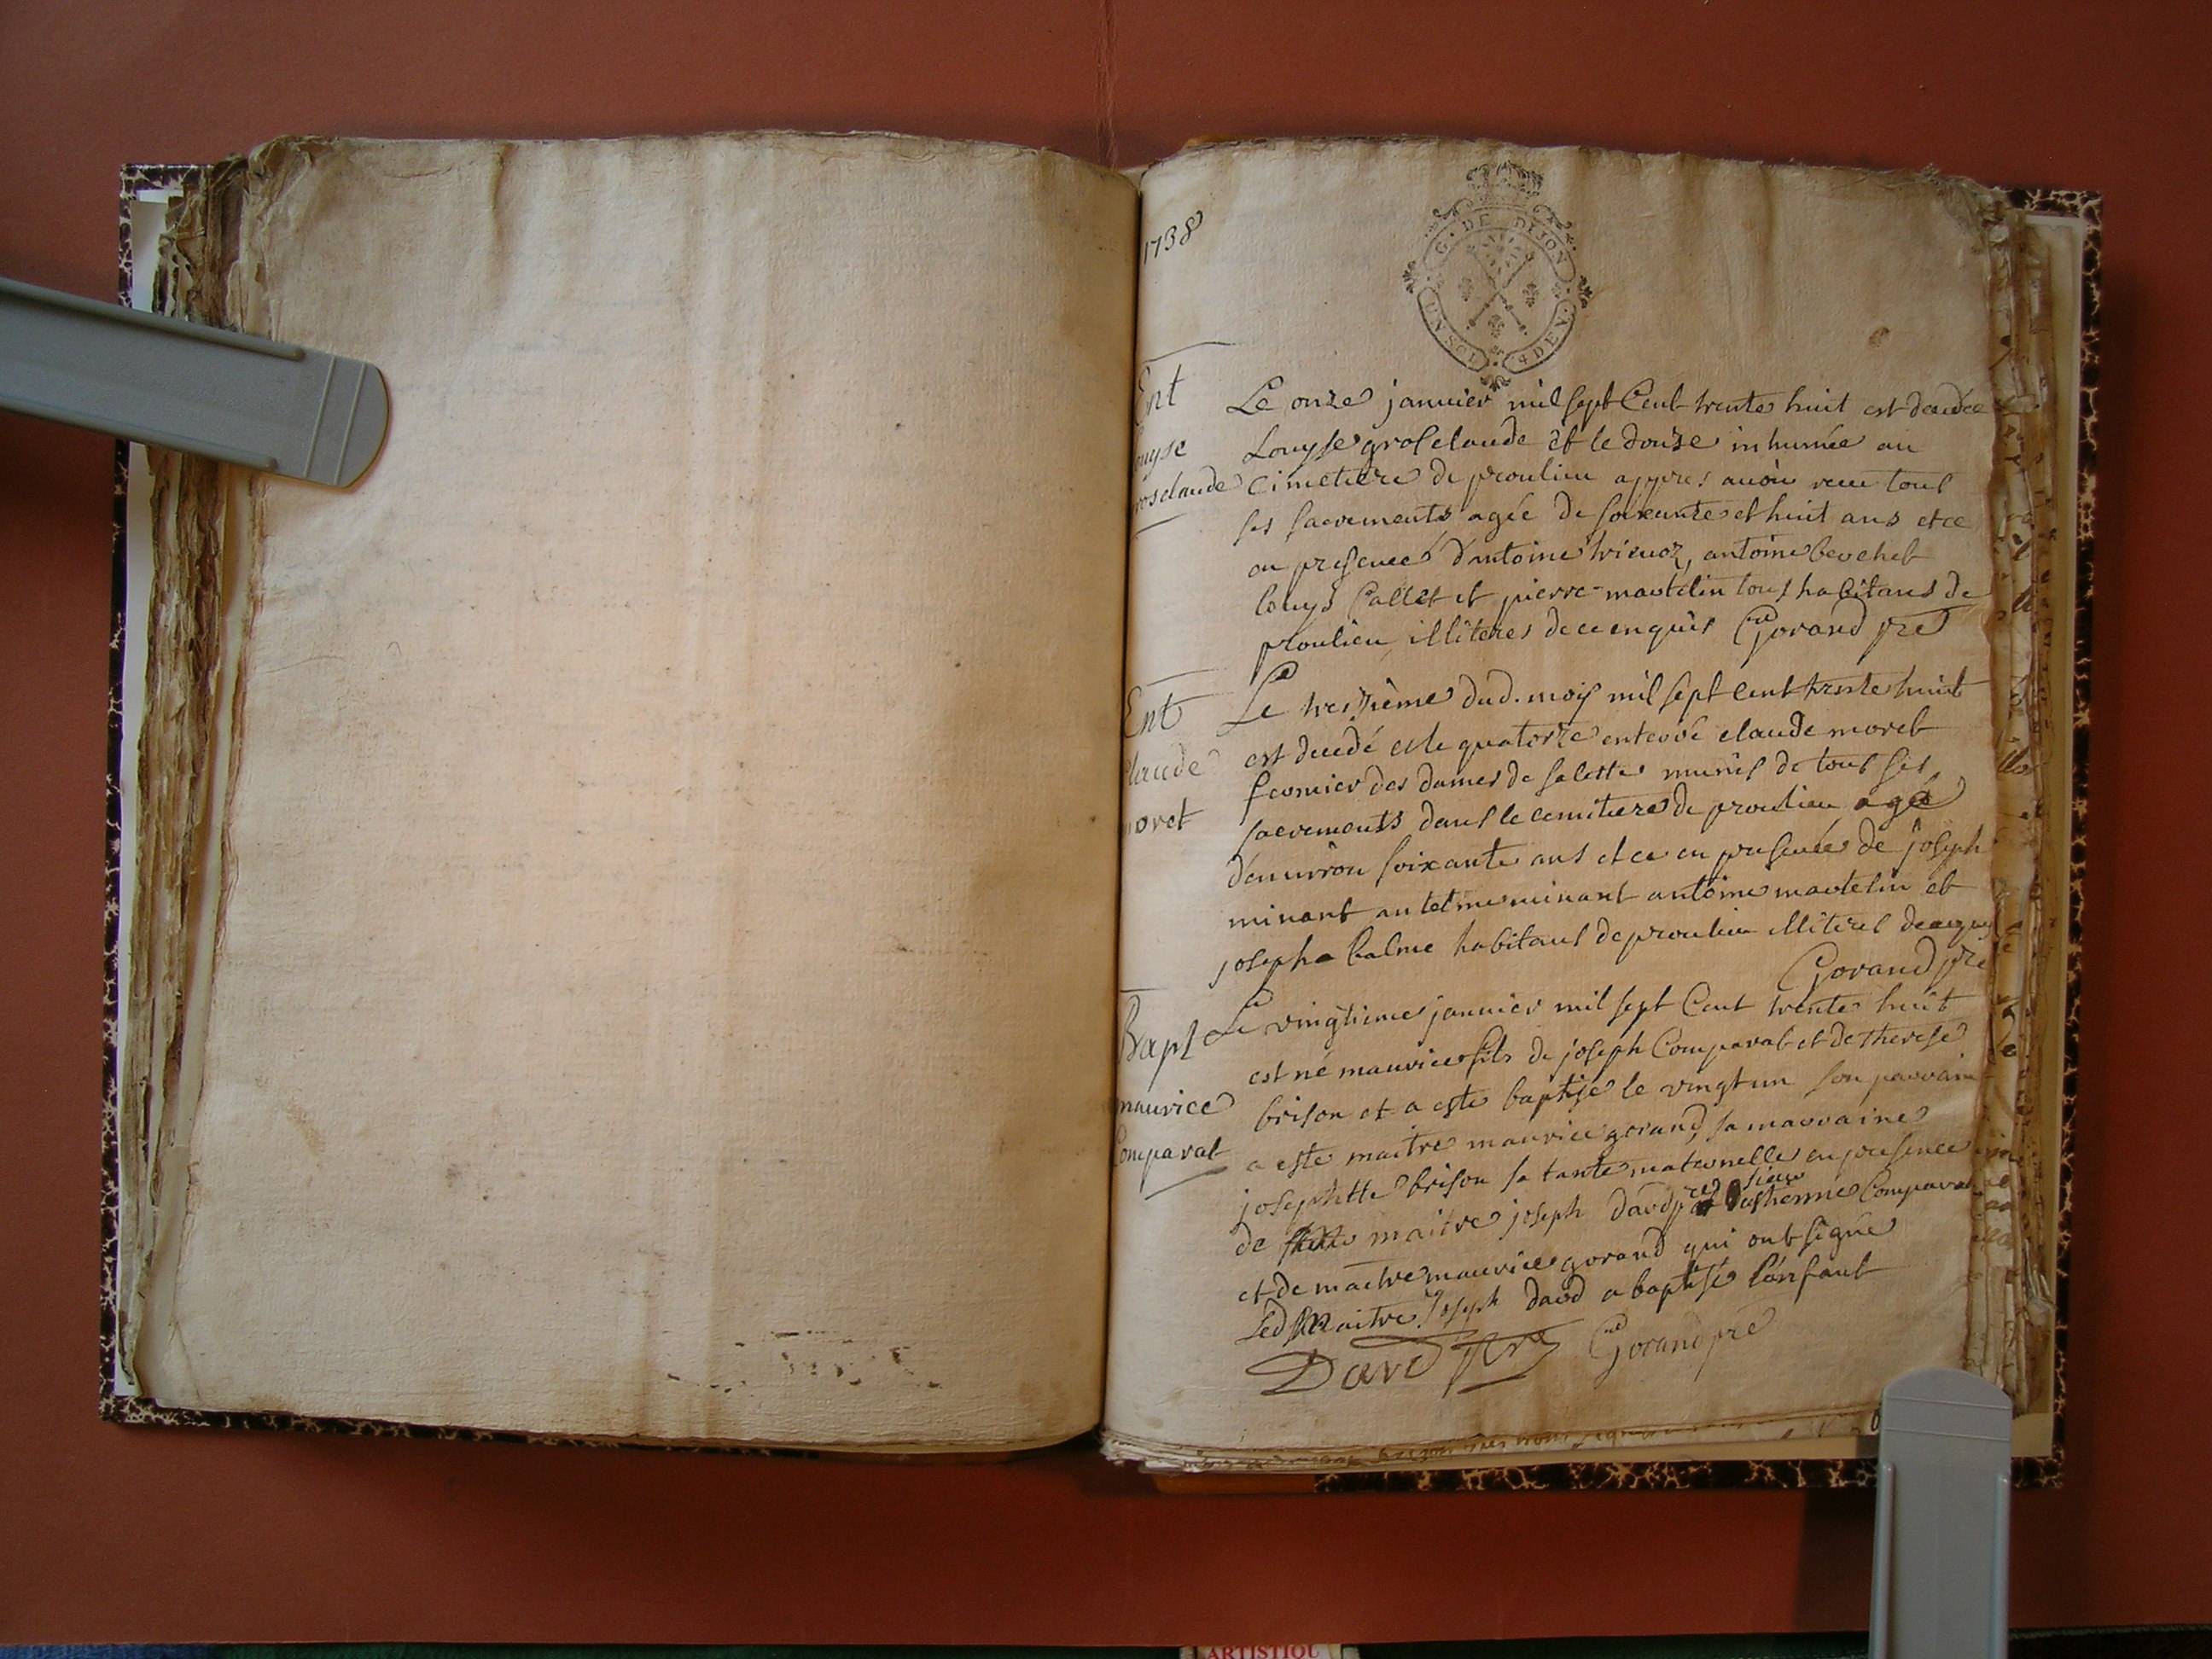 1738
G. DE DIJON
UN SOL 4 DEN.
Ent
ouyse
rosclaude
Le onze janvier mil sept Cent trente huit est decedee
Louyse grosclaude et le douze inhumée au
Cimetiere de proulieu appres auoir receu tous
ses sacrements agée de soixante et huit ans et ce
en presence d'antoine trieuoz, antoine berchet
louys Callet et pierre martelin tous habitans de
proulieu illiteres de ce enquis Gorand pre
Ent
laude
moret
Le tresième dud. mois mil sept cent trente huit
est decedé et le quatorze enterré claude moret
fermier des dames de salette munis de tous ses
sacrements dans le cemitiere de proulieu agé
d'enuiron soixante ans et ce en presence de joseph
minant antelme minant antoine martelin et
joseph balme habitans de proulieu illiteres de enquis
Gorand pre
Bapt
maurice
Comparat
Le vingtieme janvier mil sept Cent trente huit
est né maurice fils de joseph Comparat et de therese
brison et a esté baptisé le vingt un son parrain
a esté maitre maurice gorand, sa marraine
josephtte brison sa tante maternelle en presence
de maitre joseph dard pre et sieur Comparat
et de maitre maurice gorand qui ont signé
Led maitre Joseph dard a baptisé l'enfant
Dard pre Gorand pre
ARTISTIQU